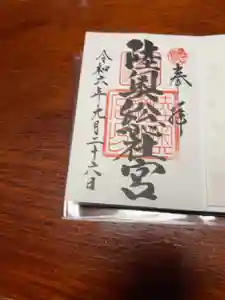 奉拝
陸奥総社宮
令和六年九月二十八日